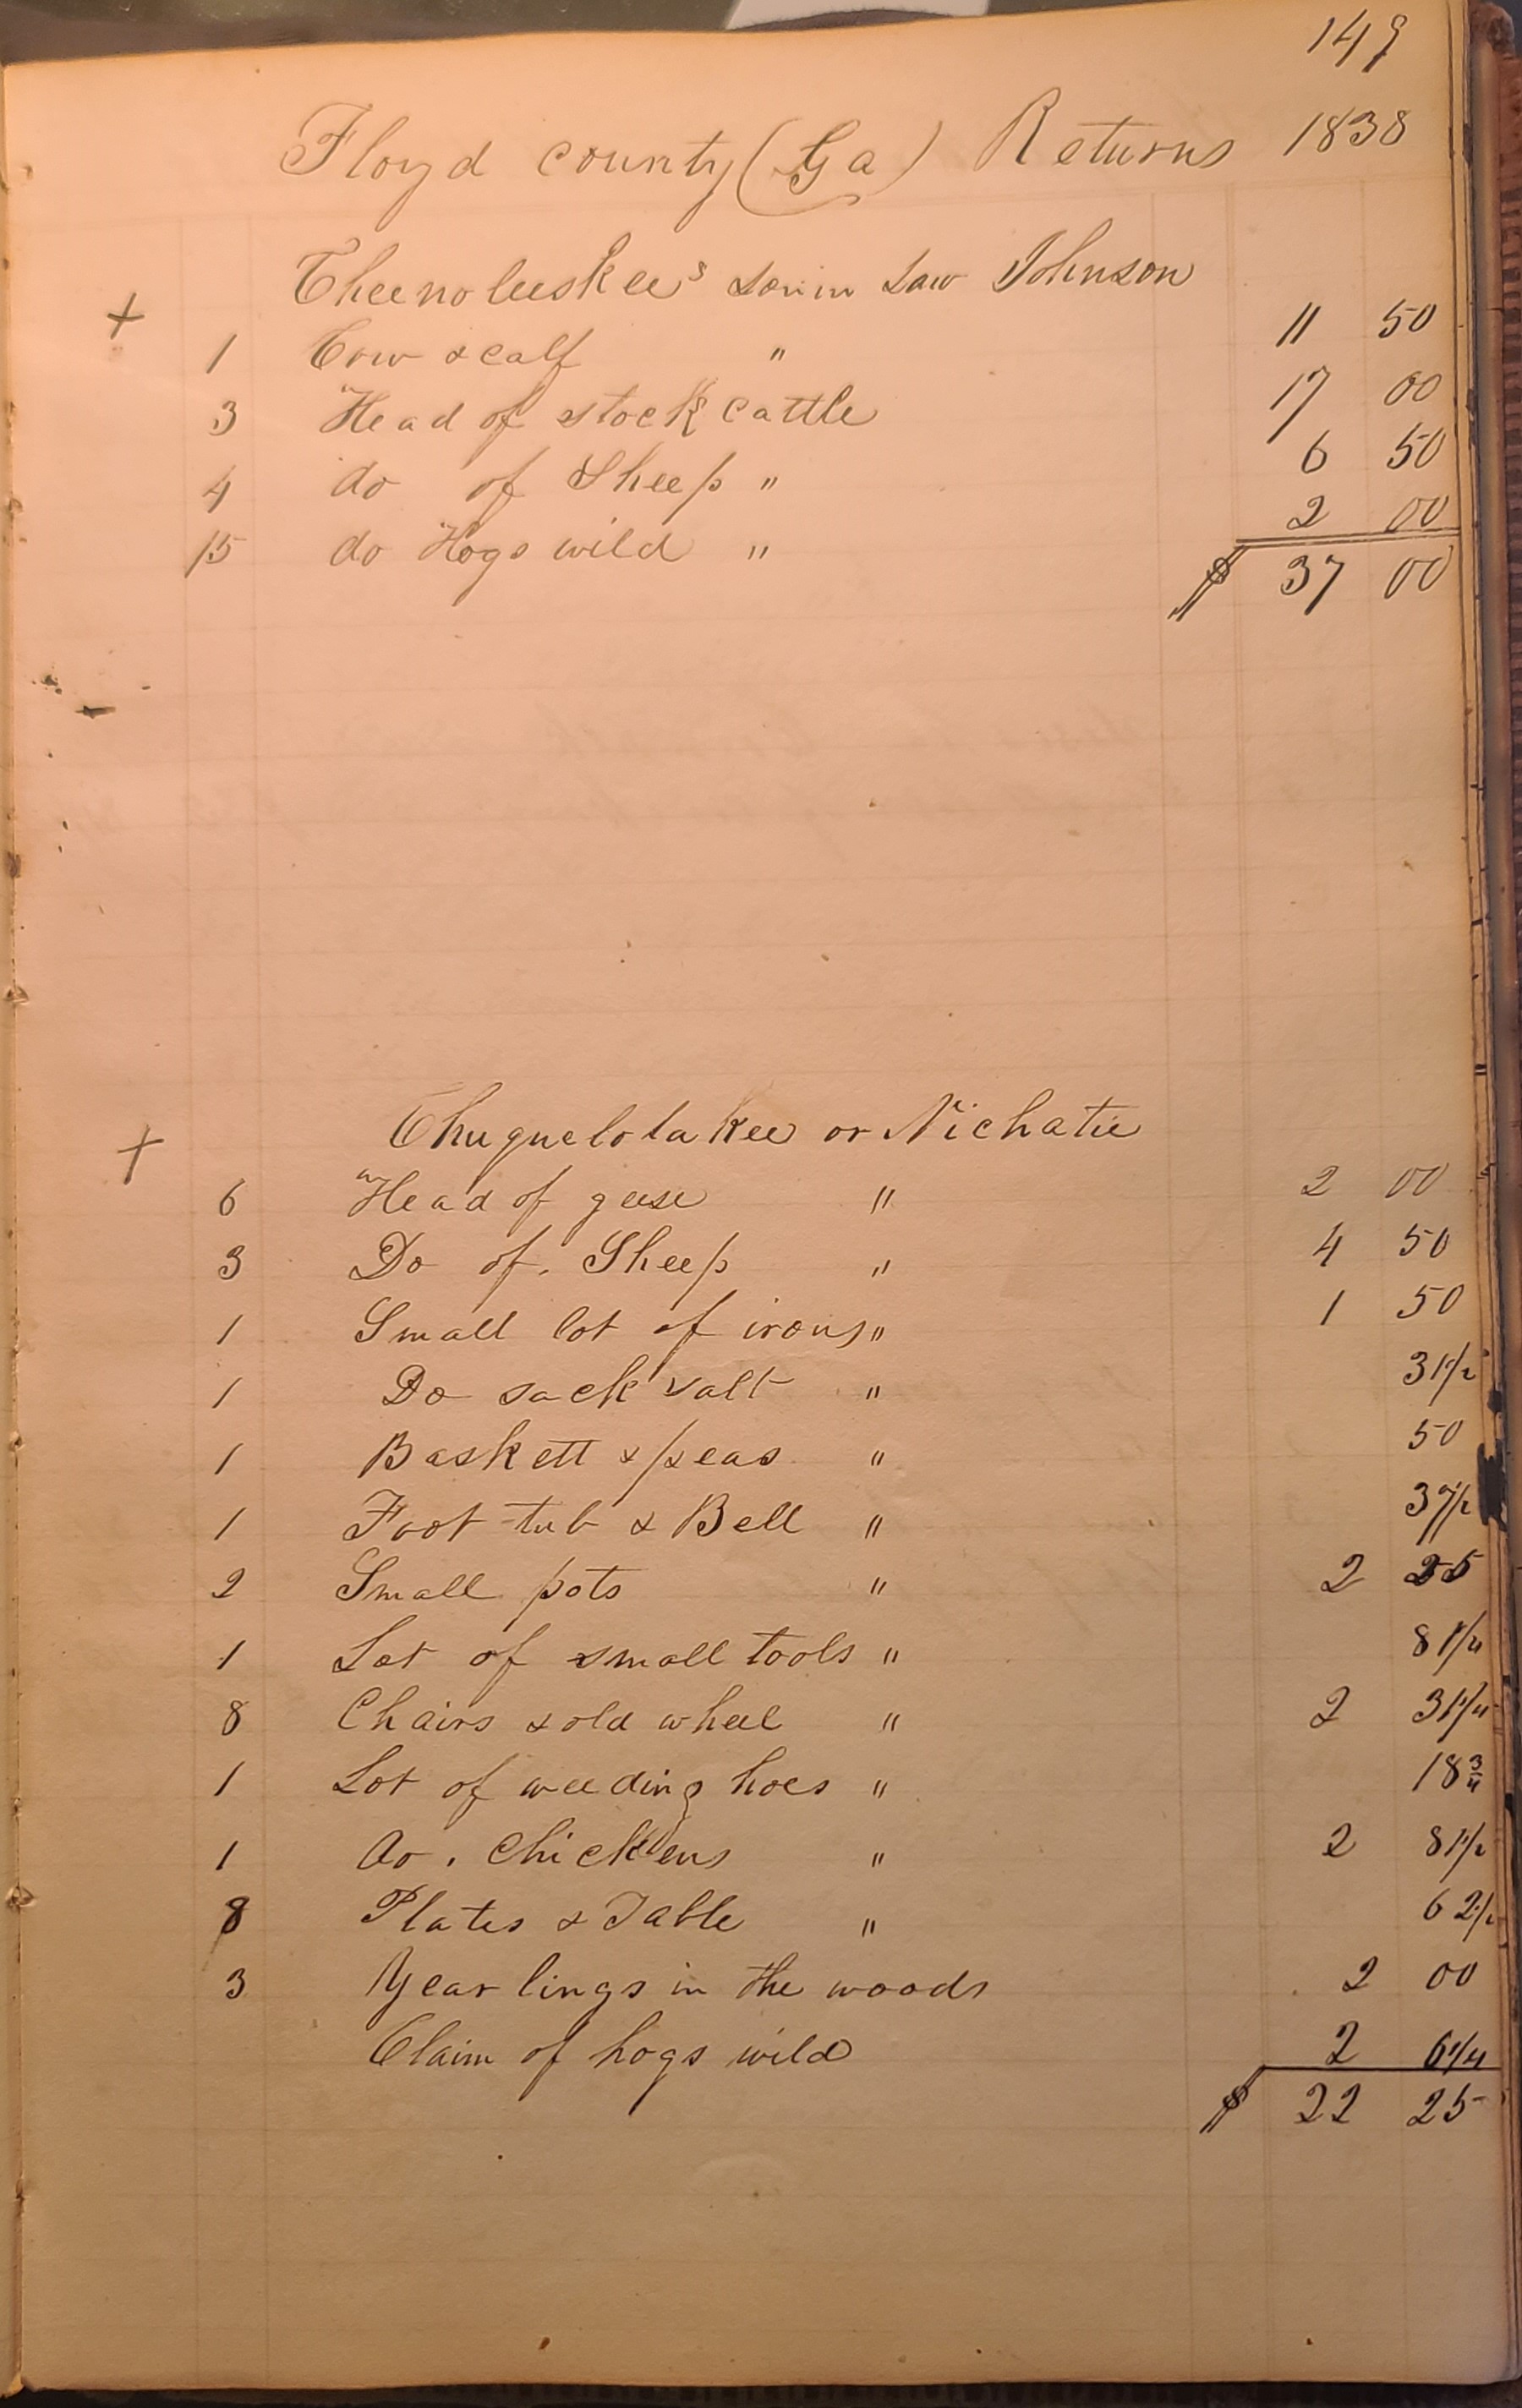 149
Floyd county (Ga) Returns 1838
+ Cheenoleeskee's Son in Law Johnson
1 Cow & calf " 11 50
3 Head of stock cattle 17 00
4 do of Sheep " 6 50
15 do Hogs wild " 2 00
$ 37 00
+ Chuquelotakee or Nichatie
6 Head of geese " 2 00
3 Do of. Sheep " 4 50
1 Small lot of irons " 1 50
1 Do sack salt " 31/2
1 Baskett & peas " 50
1 Foot tub & Bell " 37/2
2 Small pots " 2 25
1 Lot of small tools " 81/4
8 Chairs & old wheel " 2 31/4
1 Lot of weeding hoes " 18 3/4
1 do. Chickens " 2 81/2
8 Plates & Table " 62/2
3 Yearlings in the woods 2 00
Claim of hogs wild 2 61/4
$ 22 25